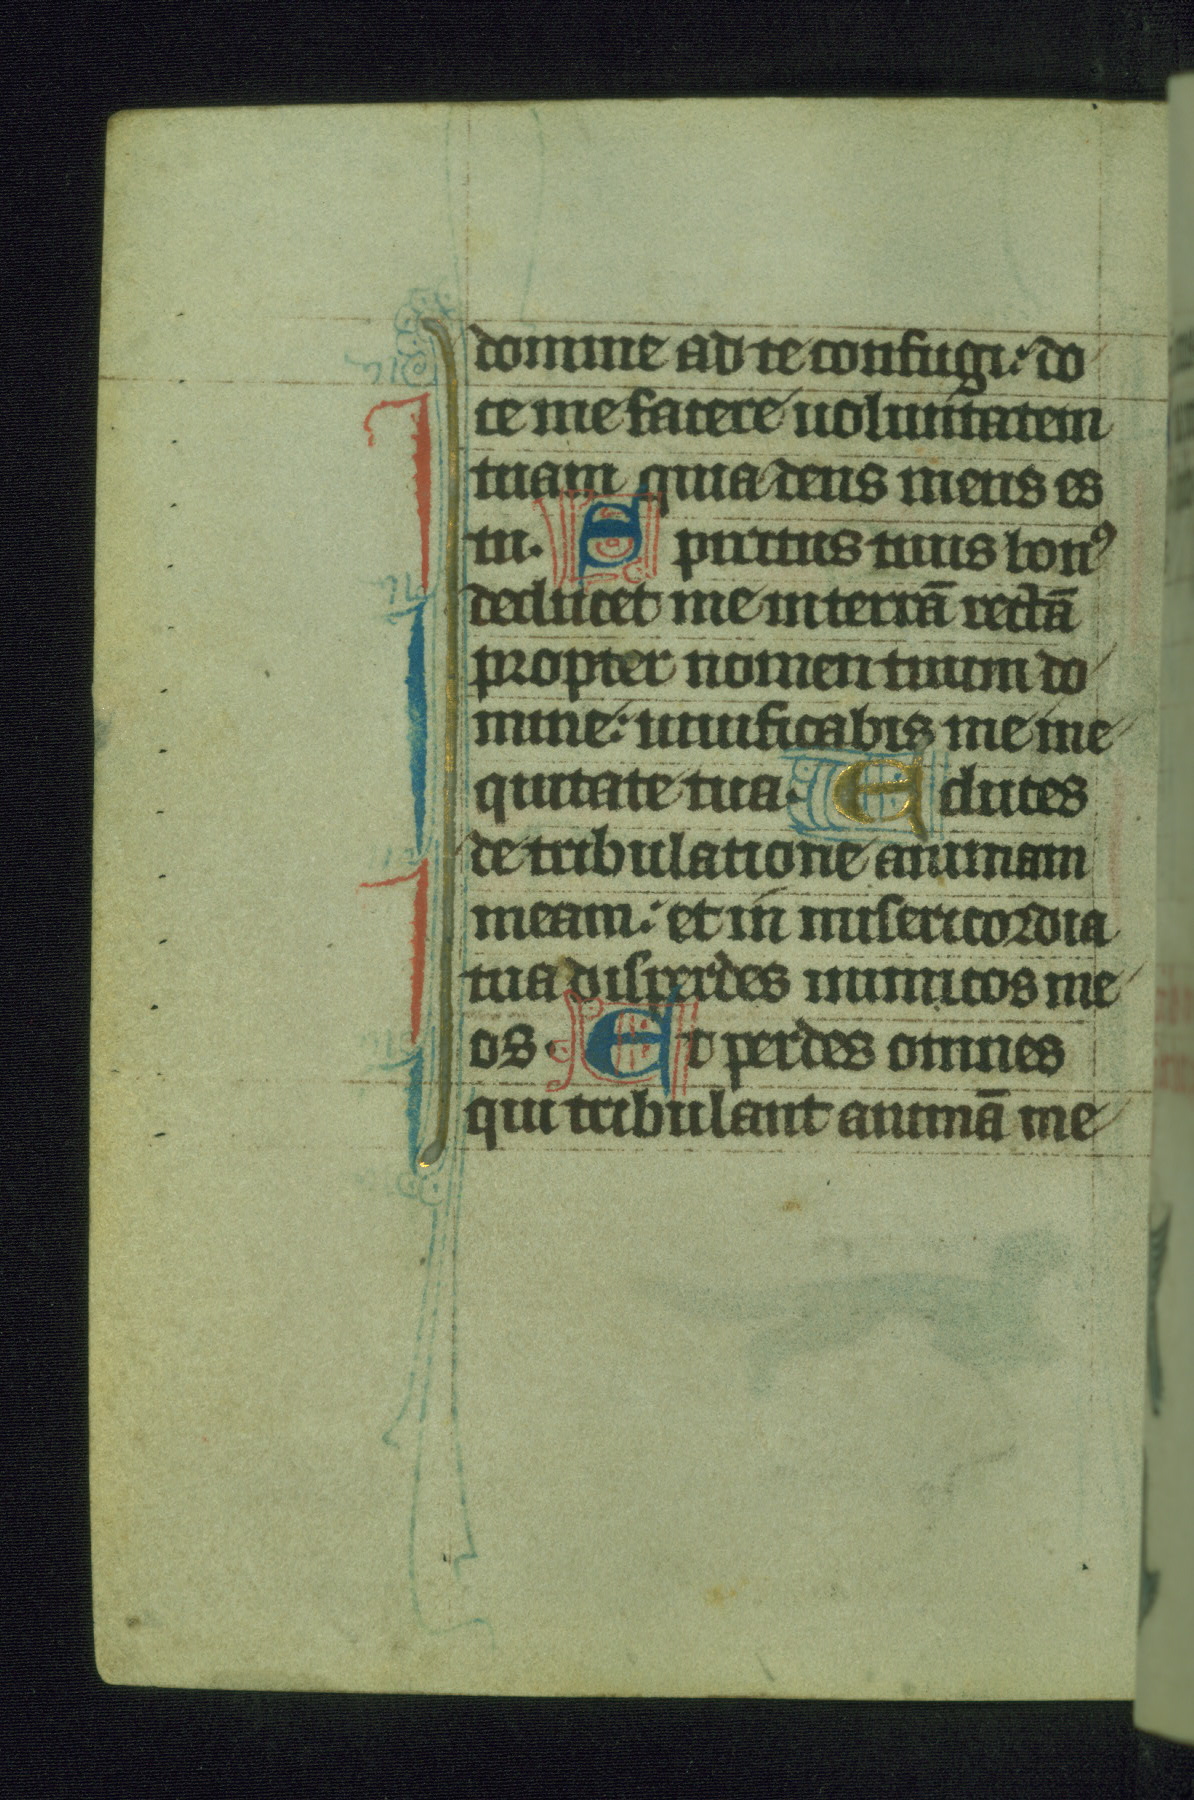 domine ad te confugi: do
ce me facere uoluntatem
tuam quia deus meus es
tu. Spiritus tuus bonꝰ
deducet me in terrā rectā
propter nomen tuum do
mine: uiuificabis me in e
quitate tua. Educes
de tribulatione animam
meam: et in misericordia
tua disperdes inimicos me
os. Et perdes omnes
qui tribulant animā me